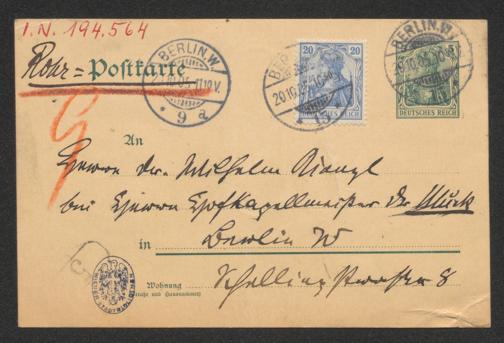 I.N. 194.564
Rohr = Postkarte
BERLIN.W.
20.10.05.11-10V.
* 9 a
20
20
BERLIN.W.
20.10.05
DEUTSCHES REICH
An
Herrn Dr. Wilhelm Kienzl
bei Herrn Hofkapellmeister Dr. Muck
in Berlin W
Wohnung
(Straße und Hausnummer)
Schellingstrasse 8